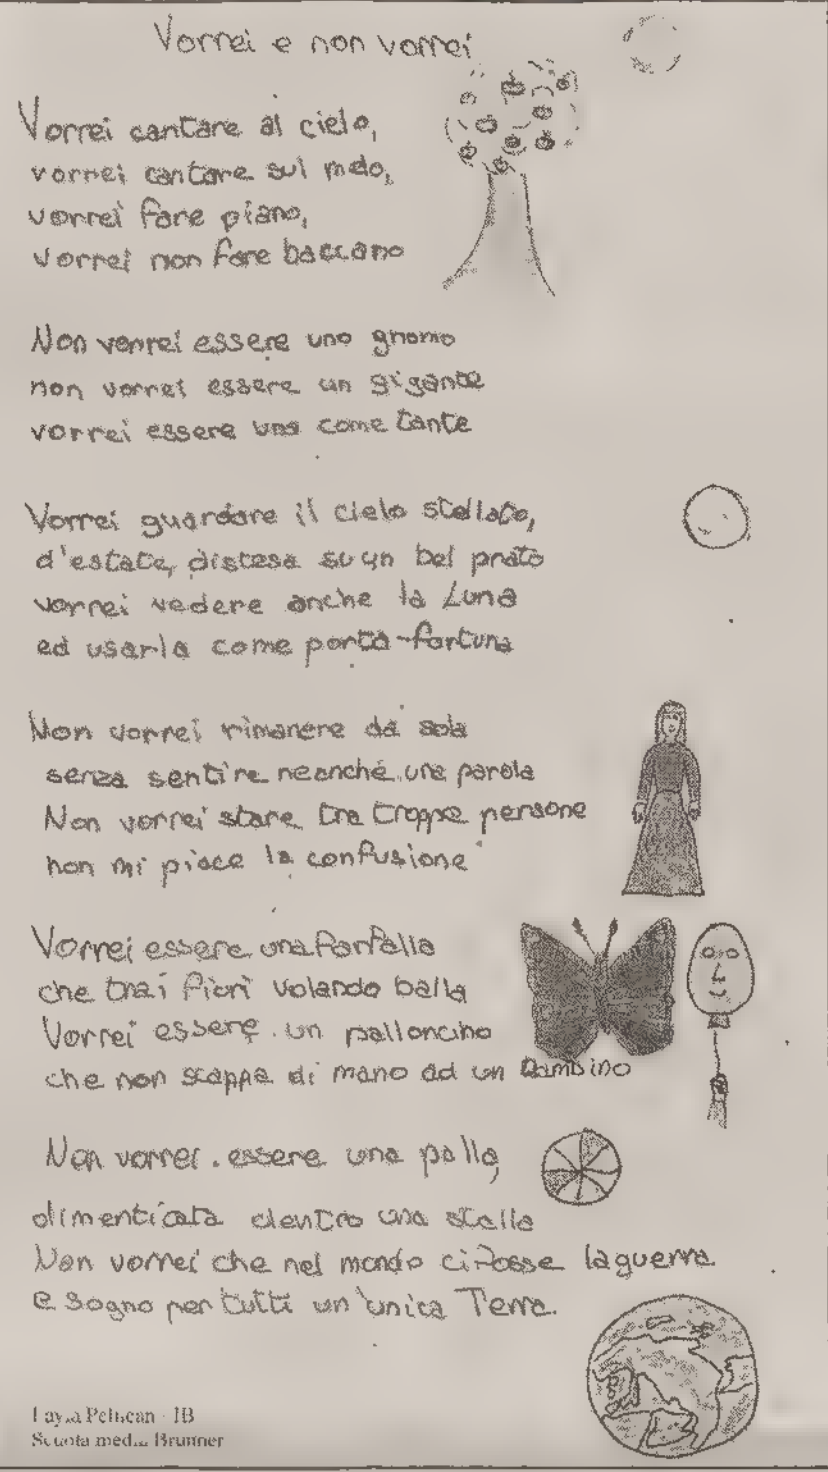 Vorrei e non vorrei
Vorrei cantare al cielo,
vorrei cantare sul melo,
vorrei fare piano,
vorrei non fare baccano
Non vorrei essere uno gnomo
non vorrei essere un gigante
vorrei essere una come tante
Vorrei guardare il cielo stellato,
d'estate, distesa su un bel prato
vorrei vedere anche la Luna
ed usarla come porta-fortuna
Non vorrei rimanere da sola
senza sentire neanché una parola
Non vorrei stare tra troppe persone
non mi piace la confusione
Vorrei essere una farfalla
che tra i fiori volando balla
Vorrei essere un palloncino
che non scappa di mano ad un bambino
Non vorrei essere una palla,
dimenticata dentro una stalla
Non vorrei che nel mondo ci fosse la guerra
e sogno per tutti un'unica Terra.
IB
Scuola Brunner